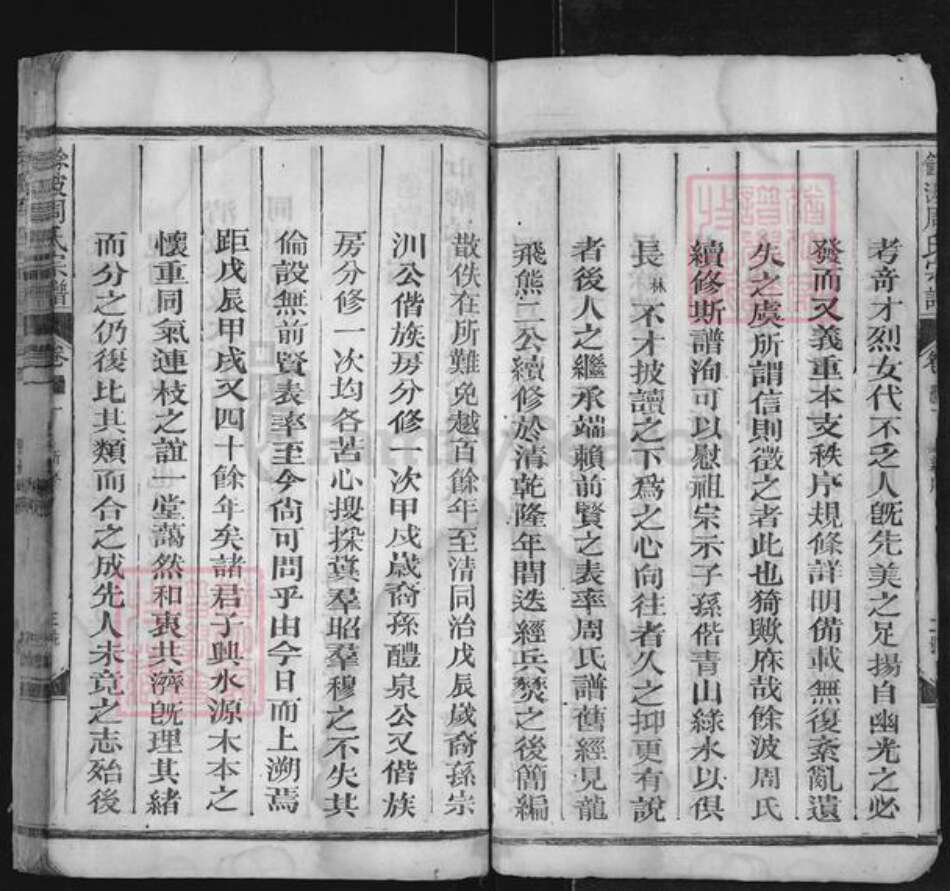 考奇才烈女代不乏人旣先美之足揚自幽光之必
發而又義重本支秩序規條詳明備載無復紊亂遺
失之虞所謂信則徵之者此也猗歟庥哉餘波周氏
續修斯譜洵可以慰祖宗示子孫偕青山綠水以俱
長林不才披讀之下爲之心向往者久之抑更有說
者後人之繼承端賴前賢之表率周氏譜舊經見龍
飛熊二公續修於清乾隆年間迭經兵燹之後簡編
散佚在所難免越百餘年至清同治戊辰歲裔孫宗
汌公偕族房分修一次甲戌歲裔孫醴泉公又偕族
房分修一次均各苦心搜採冀羣昭羣穆之不失其
倫設無前賢表率至今尙可問乎由今日而上溯焉
距戊辰甲戌又四十餘年矣諸君子興水源木本之
懷重同氣連枝之誼一堂藹然和衷共濟旣理其緒
而分之仍復比其類而合之成先人未竟之志殆後
餘波周氏宗譜 卷